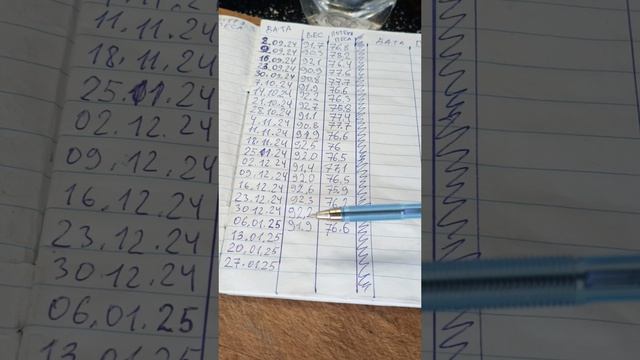 11.11.24
18.11.24
25.11.24
02.12.24
09.12.24
16.12.24
23.12.24
30.12.24
06.01.25
13.01.25
ДАТА ВЕС ПОТЕРЯ ВЕСА ДАТА
2.09.24 91.7 76.8
9.09.24 90.3 78.2
16.09.24 92.1 76.4
23.09.24 90.9 77.6
30.09.24 90.8 77.7
7.10.24 91.9 76.6
14.10.24 76.3
21.10.24 92.7 75.8
28.10.24 91.1 77.4
4.11.24 90.8 77.7
11.11.24 91.9 76.6
18.11.24 92.5 76
25.11.24 92.0 76.5
02.12.24 91.4 77.1
09.12.24 92.0 76.5
16.12.24 92.6 75.9
23.12.24 92.3 76.2
30.12.24 92.2
06.01.25 91.9 76.6
13.01.25
20.01.25
27.01.25